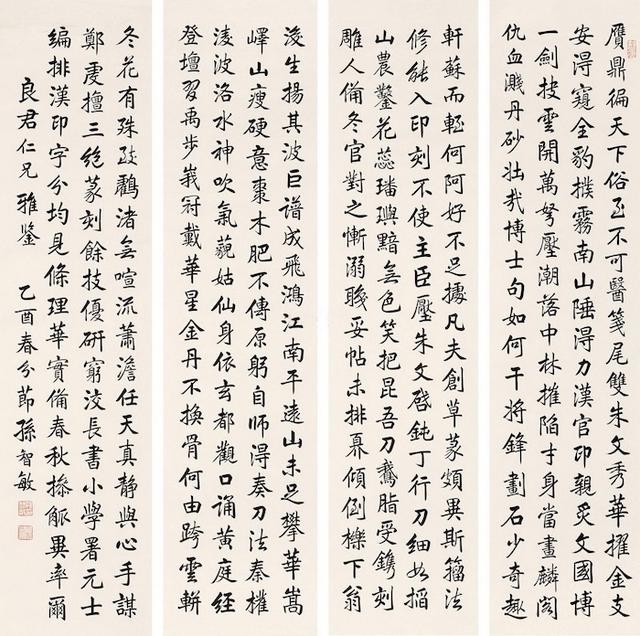 贗鼎徧天下俗不可醫箋尾雙朱文秀華擢金支
安得窺全豹撲霧南山陲得力漢官印親炙文國博
一劍披雲開萬弩壓潮落中林摧陷才身當畫麟閣
仇血濺丹砂壯哉博士句如何干將鋒劃石少奇趣
軒蘇而輊何阿好不足據凡夫創草篆頗異斯籀法
修能入印刻不使主臣壓朱文啓鈍丁行刀細如搯
山農鑿花蕊璠璵黯無色笑把昆吾刀鵞脂受鐫刻
雕人備冬官對之慚溺職妥帖未排奡傾倒櫟下翁
浚生揚其波巨譜成飛鴻江南平遠山未足攀華嵩
嶧山瘦硬意棗木肥不傳原躬自師得奏刀法秦權
淩波洛水神吹氣藐姑仙身依玄都觀口誦黃庭經
登壇習禹步峩冠戴華星金丹不換骨何由跨雲軿
冬花有殊致鸛渚無喧流蕭澹任天真靜與心手謀
鄭虔擅三絕篆刻餘技優研窮汶長書小學署元士
編排漢印字分均見條理華實備春秋摻觚異率爾
良君仁兄雅鑒 乙酉春分節孫智敏